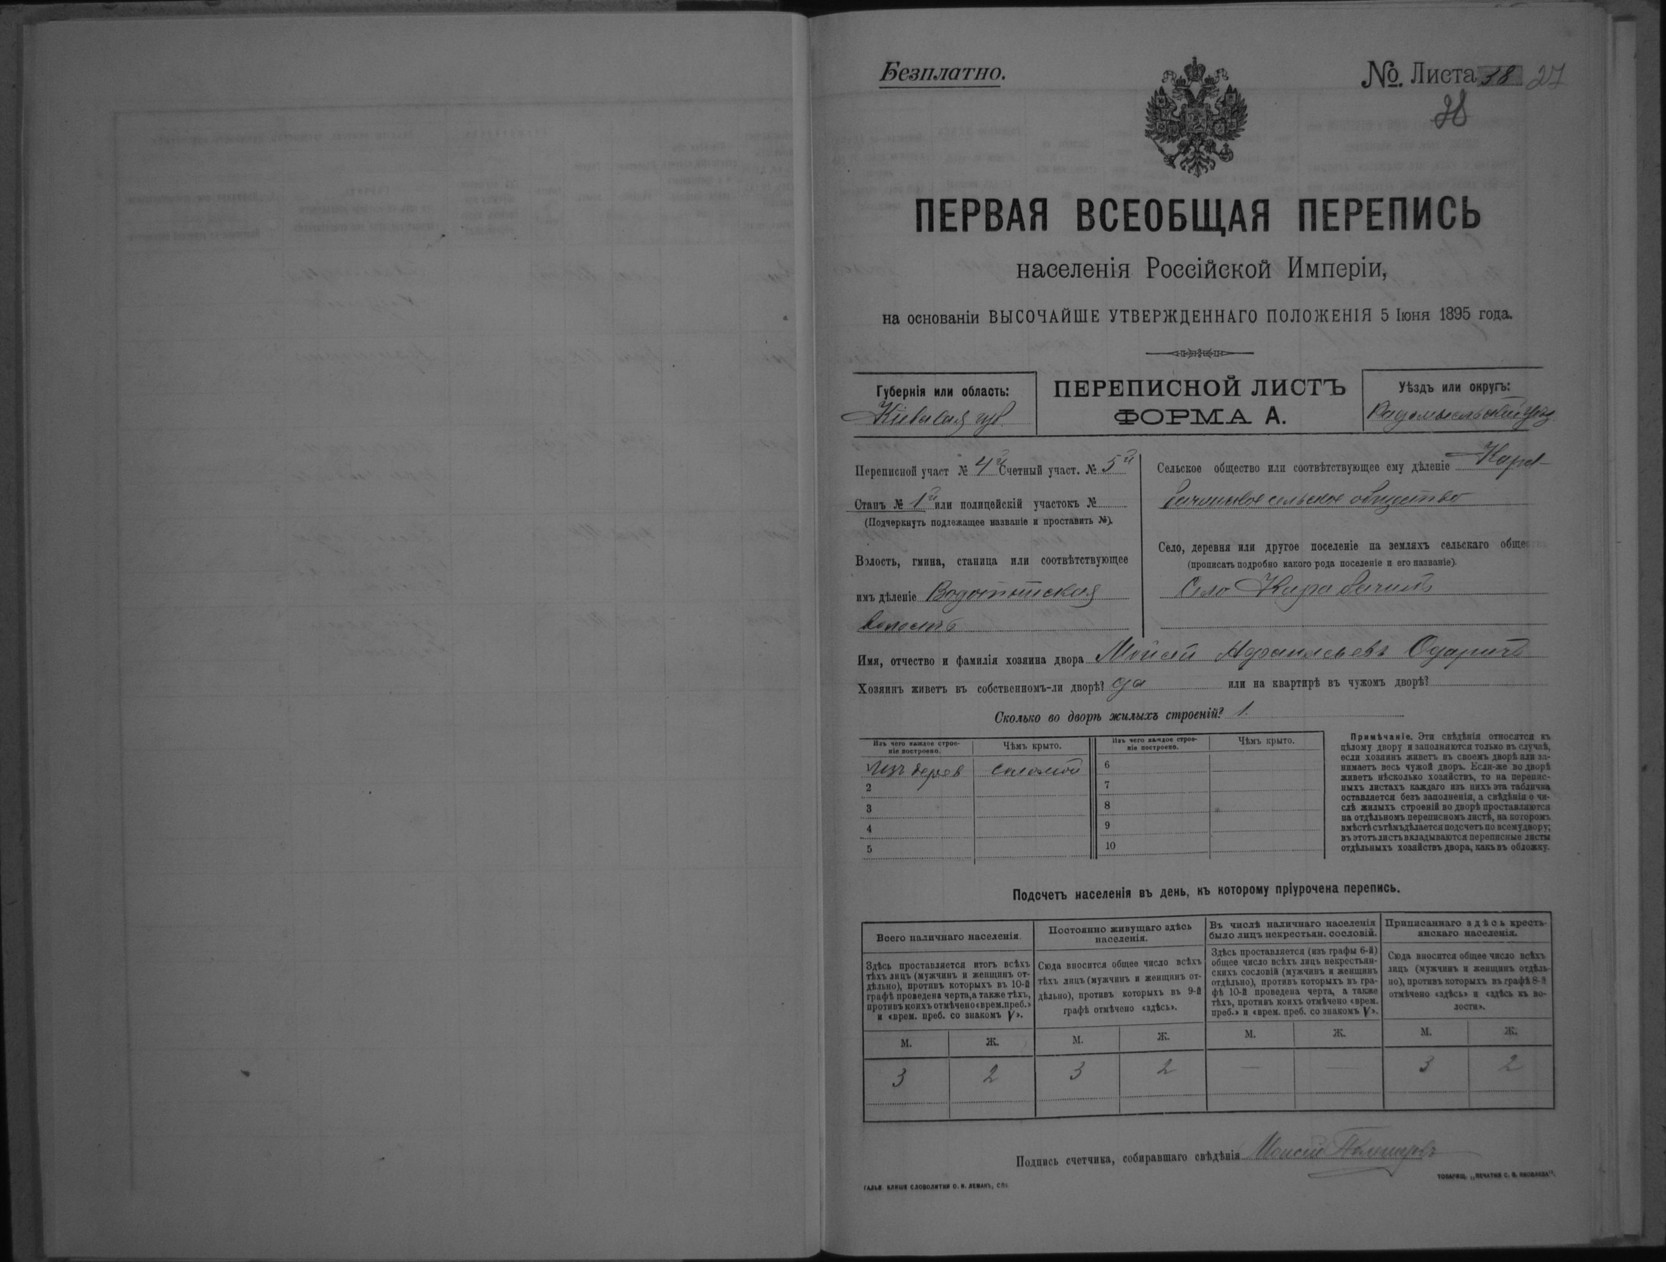 Безплатно.
№. Листа 38 27
28
ПЕРВАЯ ВСЕОБЩАЯ ПЕРЕПИСЬ
населенія Россійской Имперіи,
на основаніи ВЫСОЧАЙШЕ УТВЕРЖДЕННАГО ПОЛОЖЕНІЯ 5 Іюня 1895 года.
Губернія или область:
Кіевская губ.
ПЕРЕПИСНОЙ ЛИСТЪ
ФОРМА А.
Уѣздъ или округъ:
Радомысльскій уѣзд
Переписной участ № 4й Счетный участ. № 5й
Станъ № 1й или полицейскій участокъ №
(Подчеркнуть подлежащее названіе и проставить №).
Волость, гмина, станица или соотвѣтствующее
имъ дѣленіе Водотыйская
волость
Сельское общество или соотвѣтствующее ему дѣленіе Кара-
бачинское сельское общество
Село, деревня или другое поселеніе на земляхъ сельскаго общества
(прописать подробно какого рода поселеніе и его названіе).
Село Карабачинъ
Имя, отчество и фамилія хозяина двора Моисей Афанасьевъ Одаричъ
Хозяинъ живетъ въ собственномъ-ли дворѣ? да или на квартирѣ въ чужомъ дворѣ?
Сколько во дворѣ жилыхъ строеній? 1.
Изъ чего каждое строе-
ніе построено.
Чѣмъ крыто.
Изъ чего каждое строе-
ніе построено.
Чѣмъ крыто.
изъ дерев соломой
6
2
7
3
8
4
9
5
10
Примѣчаніе. Эти свѣдѣнія относятся къ
цѣлому двору и заполняются только въ случаѣ,
если хозяинъ живетъ въ своемъ дворѣ или за-
нимаетъ весь чужой дворъ. Если-же во дворѣ
живетъ нѣсколько хозяйствъ, то на перепис-
ныхъ листахъ каждаго изъ нихъ эта табличка
оставляется безъ заполненія, а свѣдѣнія о чи-
слѣ жилыхъ строеній во дворѣ проставляются
на отдѣльномъ переписномъ листѣ, на которомъ
вмѣстѣ съ тѣмъ дѣлается подсчетъ по всему двору;
въ этотъ листъ вкладываются переписные листы
отдѣльныхъ хозяйствъ двора, какъ въ обложку.
Подсчетъ населенія въ день, къ которому пріурочена перепись.
Всего наличнаго населенія.
Здѣсь проставляется итогъ всѣхъ
тѣхъ лицъ (мужчинъ и женщинъ от-
дѣльно), противъ которыхъ въ 10-й
графѣ проведена черта, а также тѣхъ,
противъ коихъ отмѣчено «врем. преб.»
и «врем. преб. со знакомъ V».
Постоянно живущаго здѣсь
населенія.
Сюда вносится общее число всѣхъ
тѣхъ лицъ (мужчинъ и женщинъ от-
дѣльно), противъ которыхъ въ 9-й
графѣ отмѣчено «здѣсь».
Въ числѣ наличнаго населенія
было лицъ некрестьян. сословій.
Здѣсь проставляется (изъ графы 6-й)
общее число всѣхъ лицъ некрестьян-
скихъ сословій (мужчинъ и женщинъ
отдѣльно), противъ которыхъ въ гра-
фѣ 10-й проведена черта, а также
тѣхъ, противъ коихъ отмѣчено «врем.
преб.» и «врем. преб. со знакомъ V».
Приписаннаго здѣсь кресть-
янскаго населенія.
Сюда вносится общее число всѣхъ
лицъ (мужчинъ и женщинъ отдѣль-
но), противъ которыхъ въ графѣ 8-й
отмѣчено «здѣсь» и «здѣсь въ во-
лости».
М. Ж. М. Ж. М. Ж. М. Ж.
3 2 3 2 — — 3 2
Подпись счетчика, собиравшаго свѣдѣнія Моисей
ГАЛЬВ. КЛИШЕ СЛОВОЛИТНИ О. И. ЛЕМАНЪ, СПБ.
ТОВАРИЩ. „ПЕЧАТНЯ С. П. ЯКОВЛЕВА“.